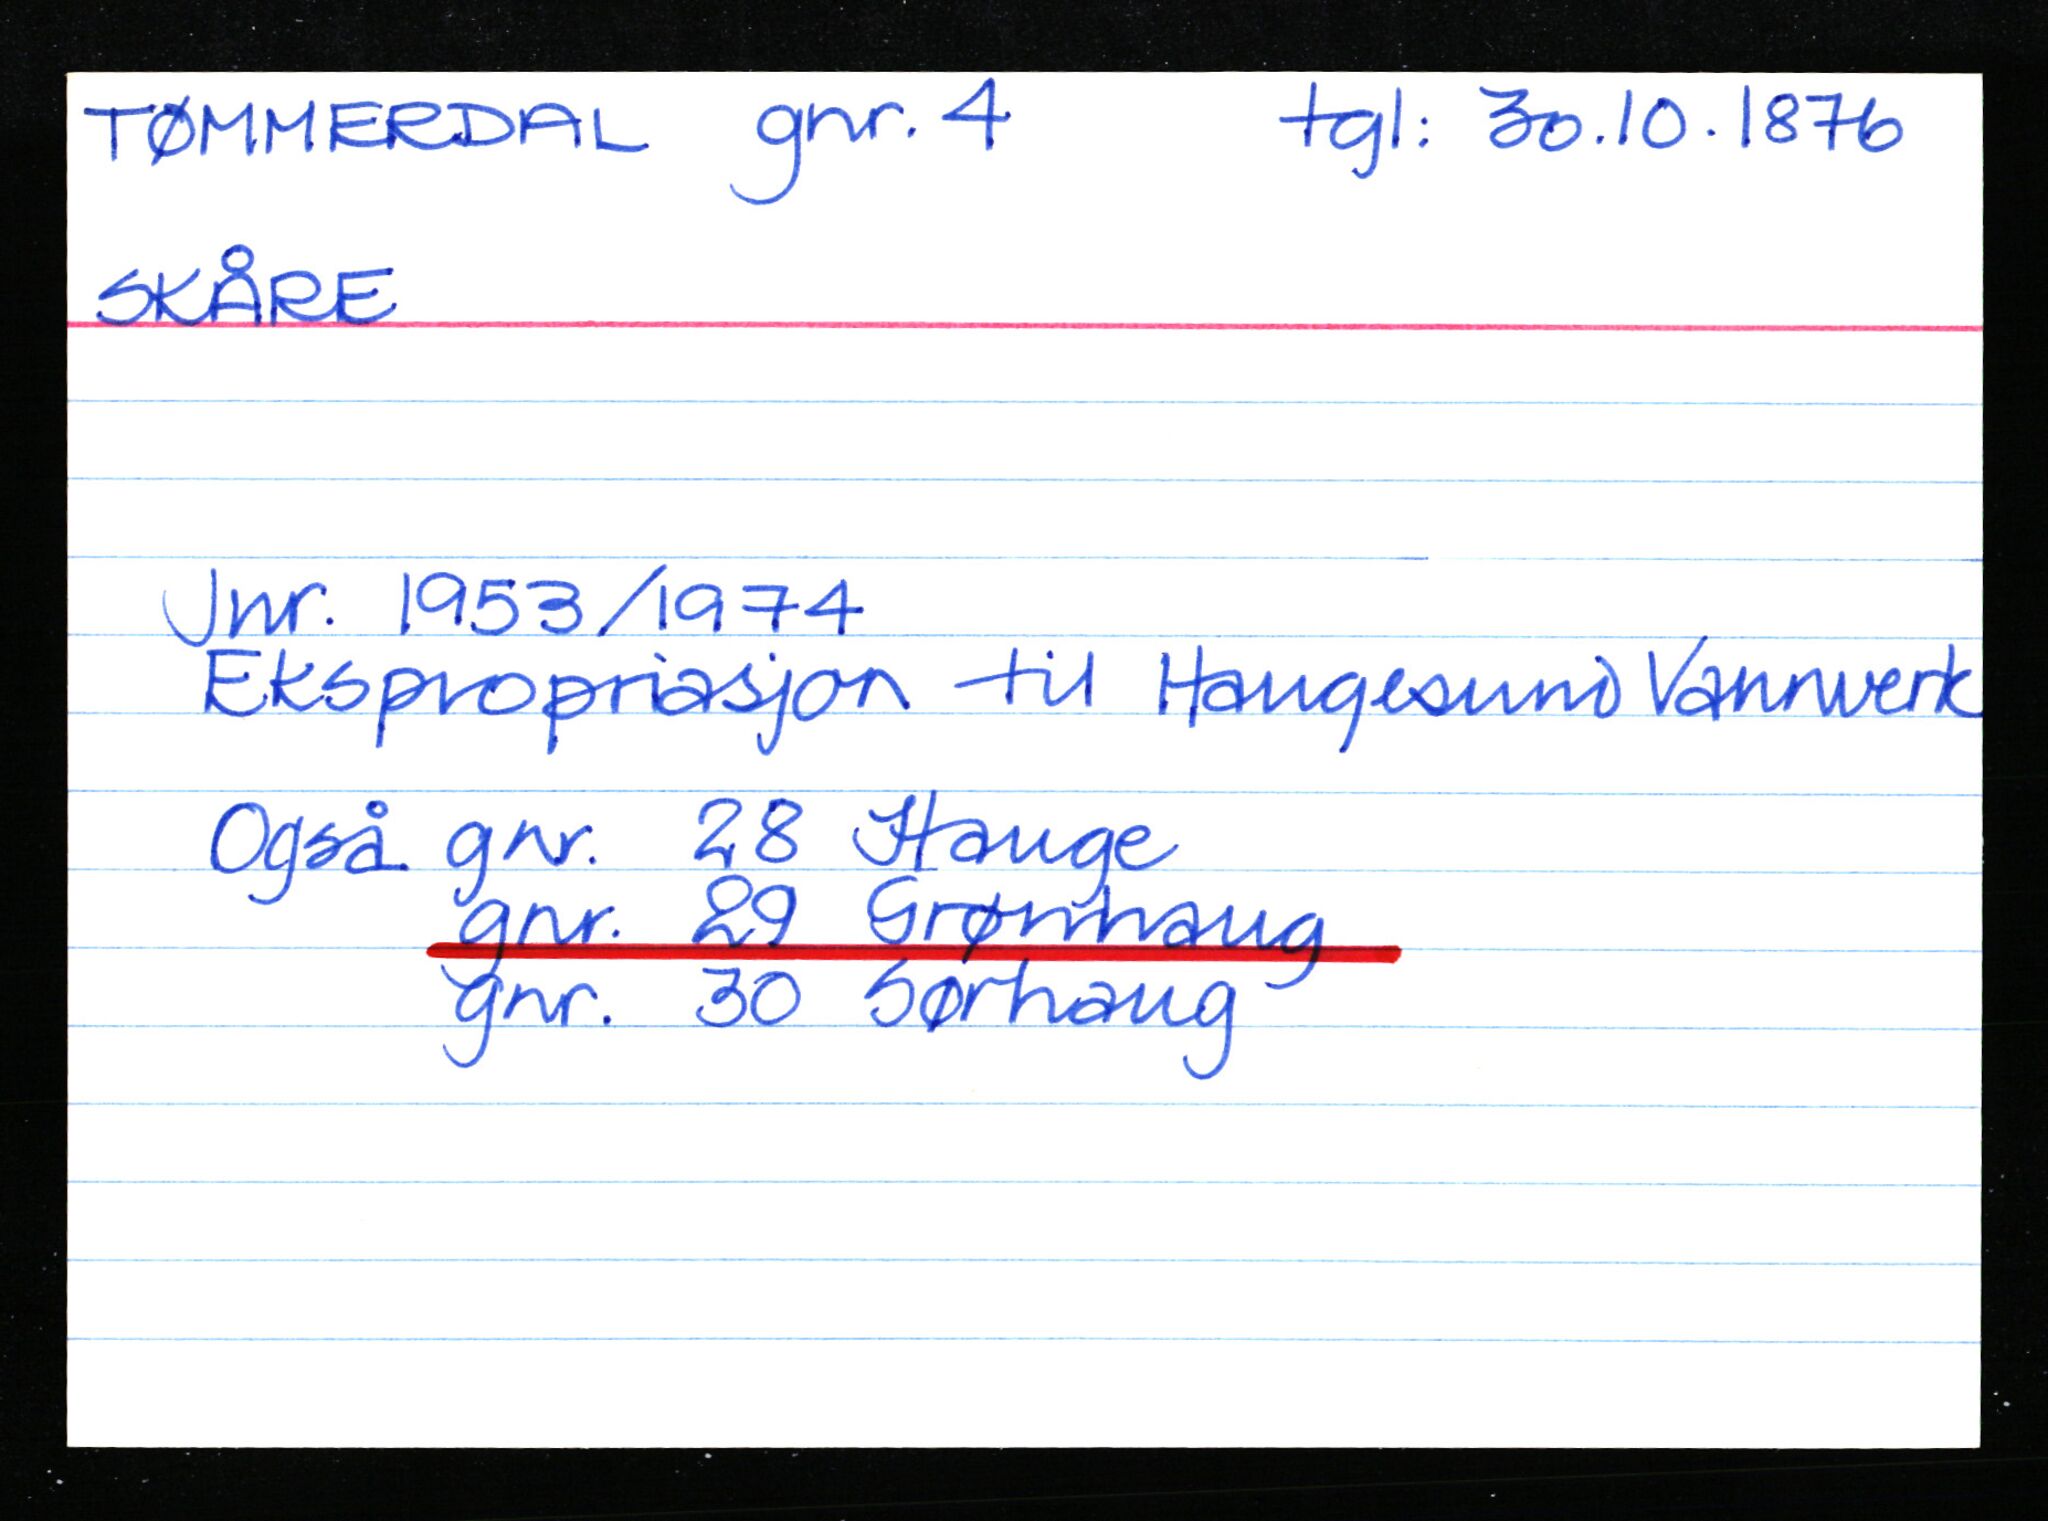 TØMMERDAL gnr. 4 tgl: 30.10.1876
SKÅRE
Jnr. 1953/1974
Ekspropriasjon til Haugesund Vannverk
Også gnr. 28 Hauge
gnr. 29 Grønhaug
gnr. 30 Sørhaug